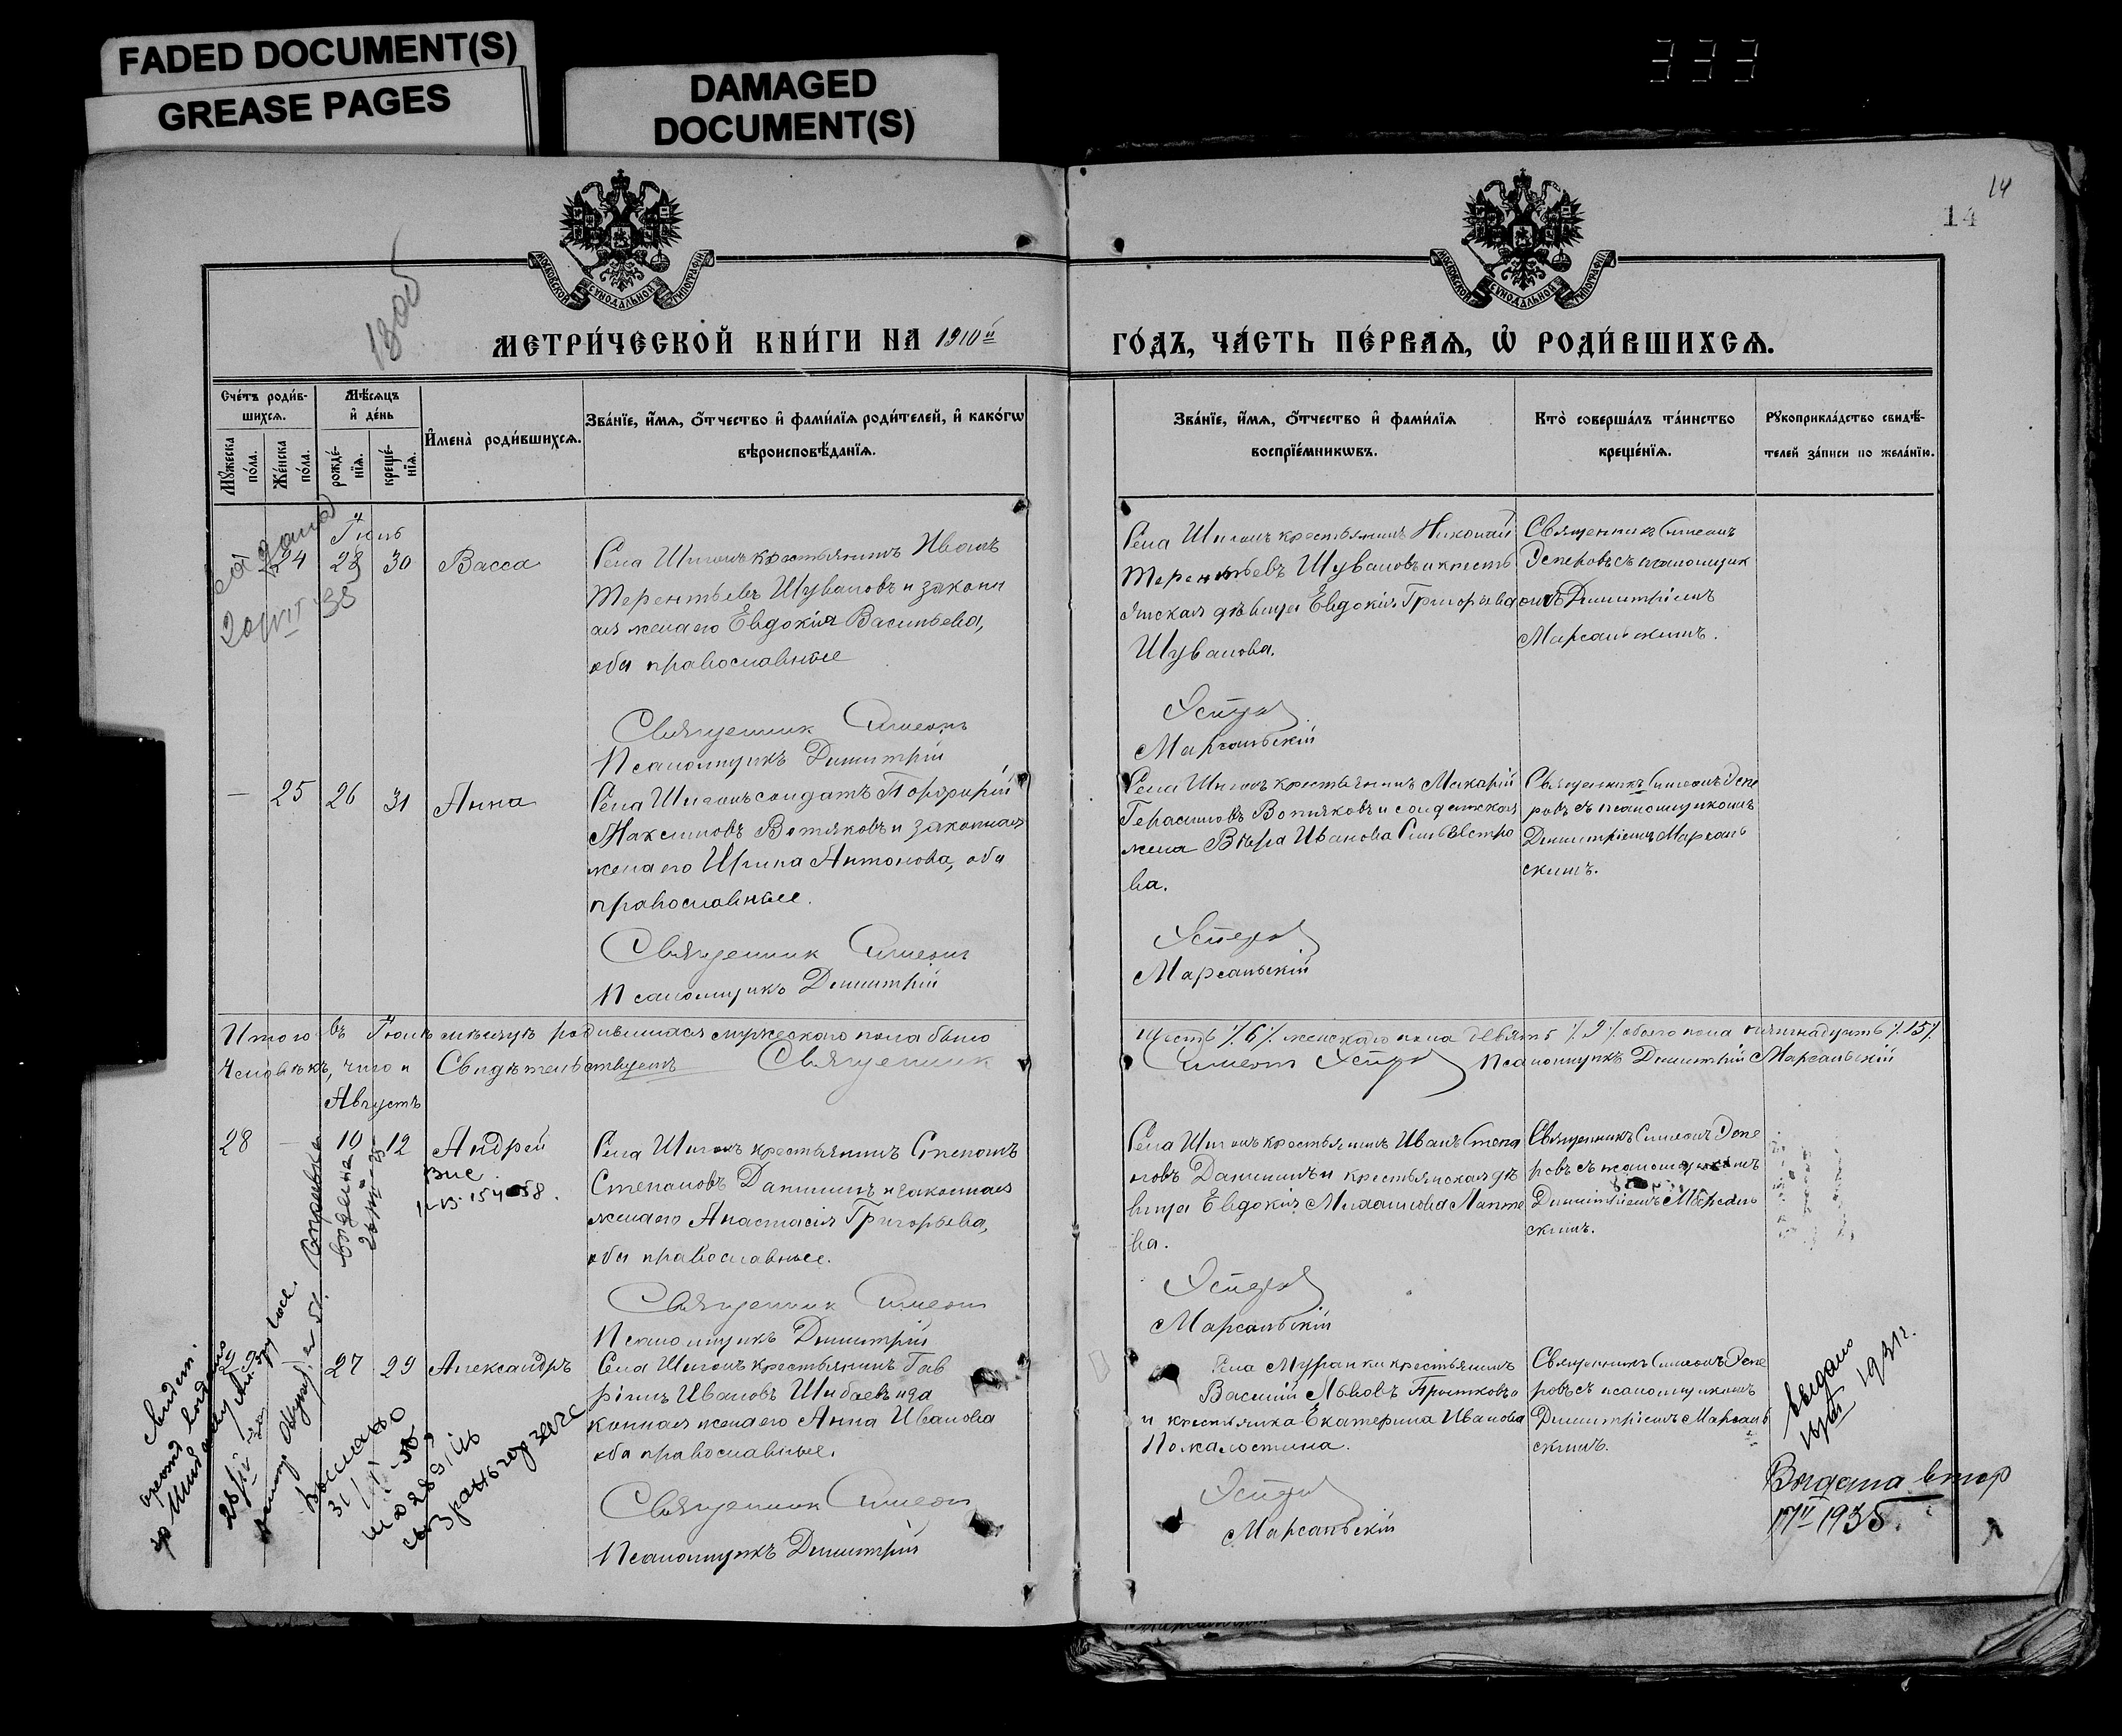 FADED DOCUMENT(S)
GREASE PAGES
DAMAGED
DOCUMENT(S)
333
14
14
МОСКОВСКОЙ СѴНОДАЛЬНОЙ ТИПОГРАФІИ
МОСКОВСКОЙ СѴНОДАЛЬНОЙ ТИПОГРАФІИ
МЕТРИ́ЧЕСКОЙ КНИ́ГИ НА 1910й
ГО́ДЪ, ЧА́СТЬ ПЕ́РВАѦ, Ѡ҆ РОДИ́ВШИХСѦ.
Сче́тъ роди́в-
шихсѧ.
Мꙋ́жеска по́ла.
Же́нска по́ла.
Мѣ́сѧцъ
и҆ де́нь
рожде́-
нїѧ.
креще́-
нїѧ.
И҆мена̀ роди́вшихсѧ.
Зва́нїе, и҆́мѧ, ѻ҆́тчество и҆ фами́лїѧ роди́телей, и҆ како́гѡ
вѣроисповѣ́данїѧ.
Зва́нїе, и҆́мѧ, ѻ҆́тчество и҆ фами́лїѧ
воспрїе́мникѡвъ.
Кто̀ соверша́лъ та́инство
креще́нїѧ.
Рꙋкоприкла́дство свидѣ́-
телей за́писи по жела́нїю.
Іюль
24 28 30 Васса
Села Шигонъ крестьянинъ Иванъ
Терентьевъ Шуваловъ и законн
ая жена его Евдокія Васильева,
оба православные
Священник Симеонъ
Псаломщикъ Димитрій
Села Шигонъ крестьянинъ Николай
Терентьевъ Шуваловъ и кресть
янская дѣвица Евдокія Григорьева
Шувалова.
Эсперов
Марсальскій
Священникъ Симеонъ
Эсперовъ съ псаломщик
омъ Димитріемъ
Марсальскимъ.
— 25 26 31 Анна
Села Шигонъ солдатъ Порфирій
Максимовъ Вотяковъ и законная
жена его Ирина Антонова, оба
православные.
Священник Симеонъ
Псаломщикъ Димитрій
Села Шигонъ крестьянинъ Макарій
Герасимовъ Вотяковъ и солдатская
жена Вѣра Иванова Сильвестро
ва.
Эсперов
Марсальскій
Священникъ Симеонъ Эспе
ровъ съ псаломщикомъ
Димитріемъ Марсаль
скимъ.
Итого въ Іюлѣ мѣсяцѣ родившихся мужескаго пола было
шесть /.6/. женскаго пола девять /.9/. обоего пола пятнадцать /.15/.
Человѣкъ, чего и Свидѣтельствуемъ Священник
Симеонъ Эсперов Псаломщикъ Димитрій Марсальскій
Августъ
28 — 10 12 Андрей
Села Шигонъ крестьянинъ Степанъ
Степановъ Данилинъ и законная
жена его Анастасія Григорьева,
оба православные.
Священник Симеонъ
Псаломщикъ Димитрій
Села Шигонъ крестьянинъ Иванъ Степа
новъ Данилинъ и крестьянская дѣ
вица Евдокія Михаилова Лапте
ва.
Эсперов
Марсальскій
Священникъ Симеонъ Эспе
ровъ съ псаломщикомъ
Димитріемъ Марсаль
скимъ.
29 27 29 Александръ
Села Шигонъ крестьянинъ Гав
ріилъ Ивановъ Шибаевъ и за
конная жена его Анна Иванова
оба православные.
Священник Симеонъ
Псаломщикъ Димитрій
Села Муранки крестьянинъ
Василій Львовъ
и крестьянка Екатерина Иванова
Помалостина.
Эсперов
Марсальскій
Священникъ Симеонъ Эспе
ровъ съ псаломщикомъ
Димитріемъ Марсаль
скимъ.
Справка
выдана
выслано
выдано
1931г.
Выдана втор
17/II 1935.